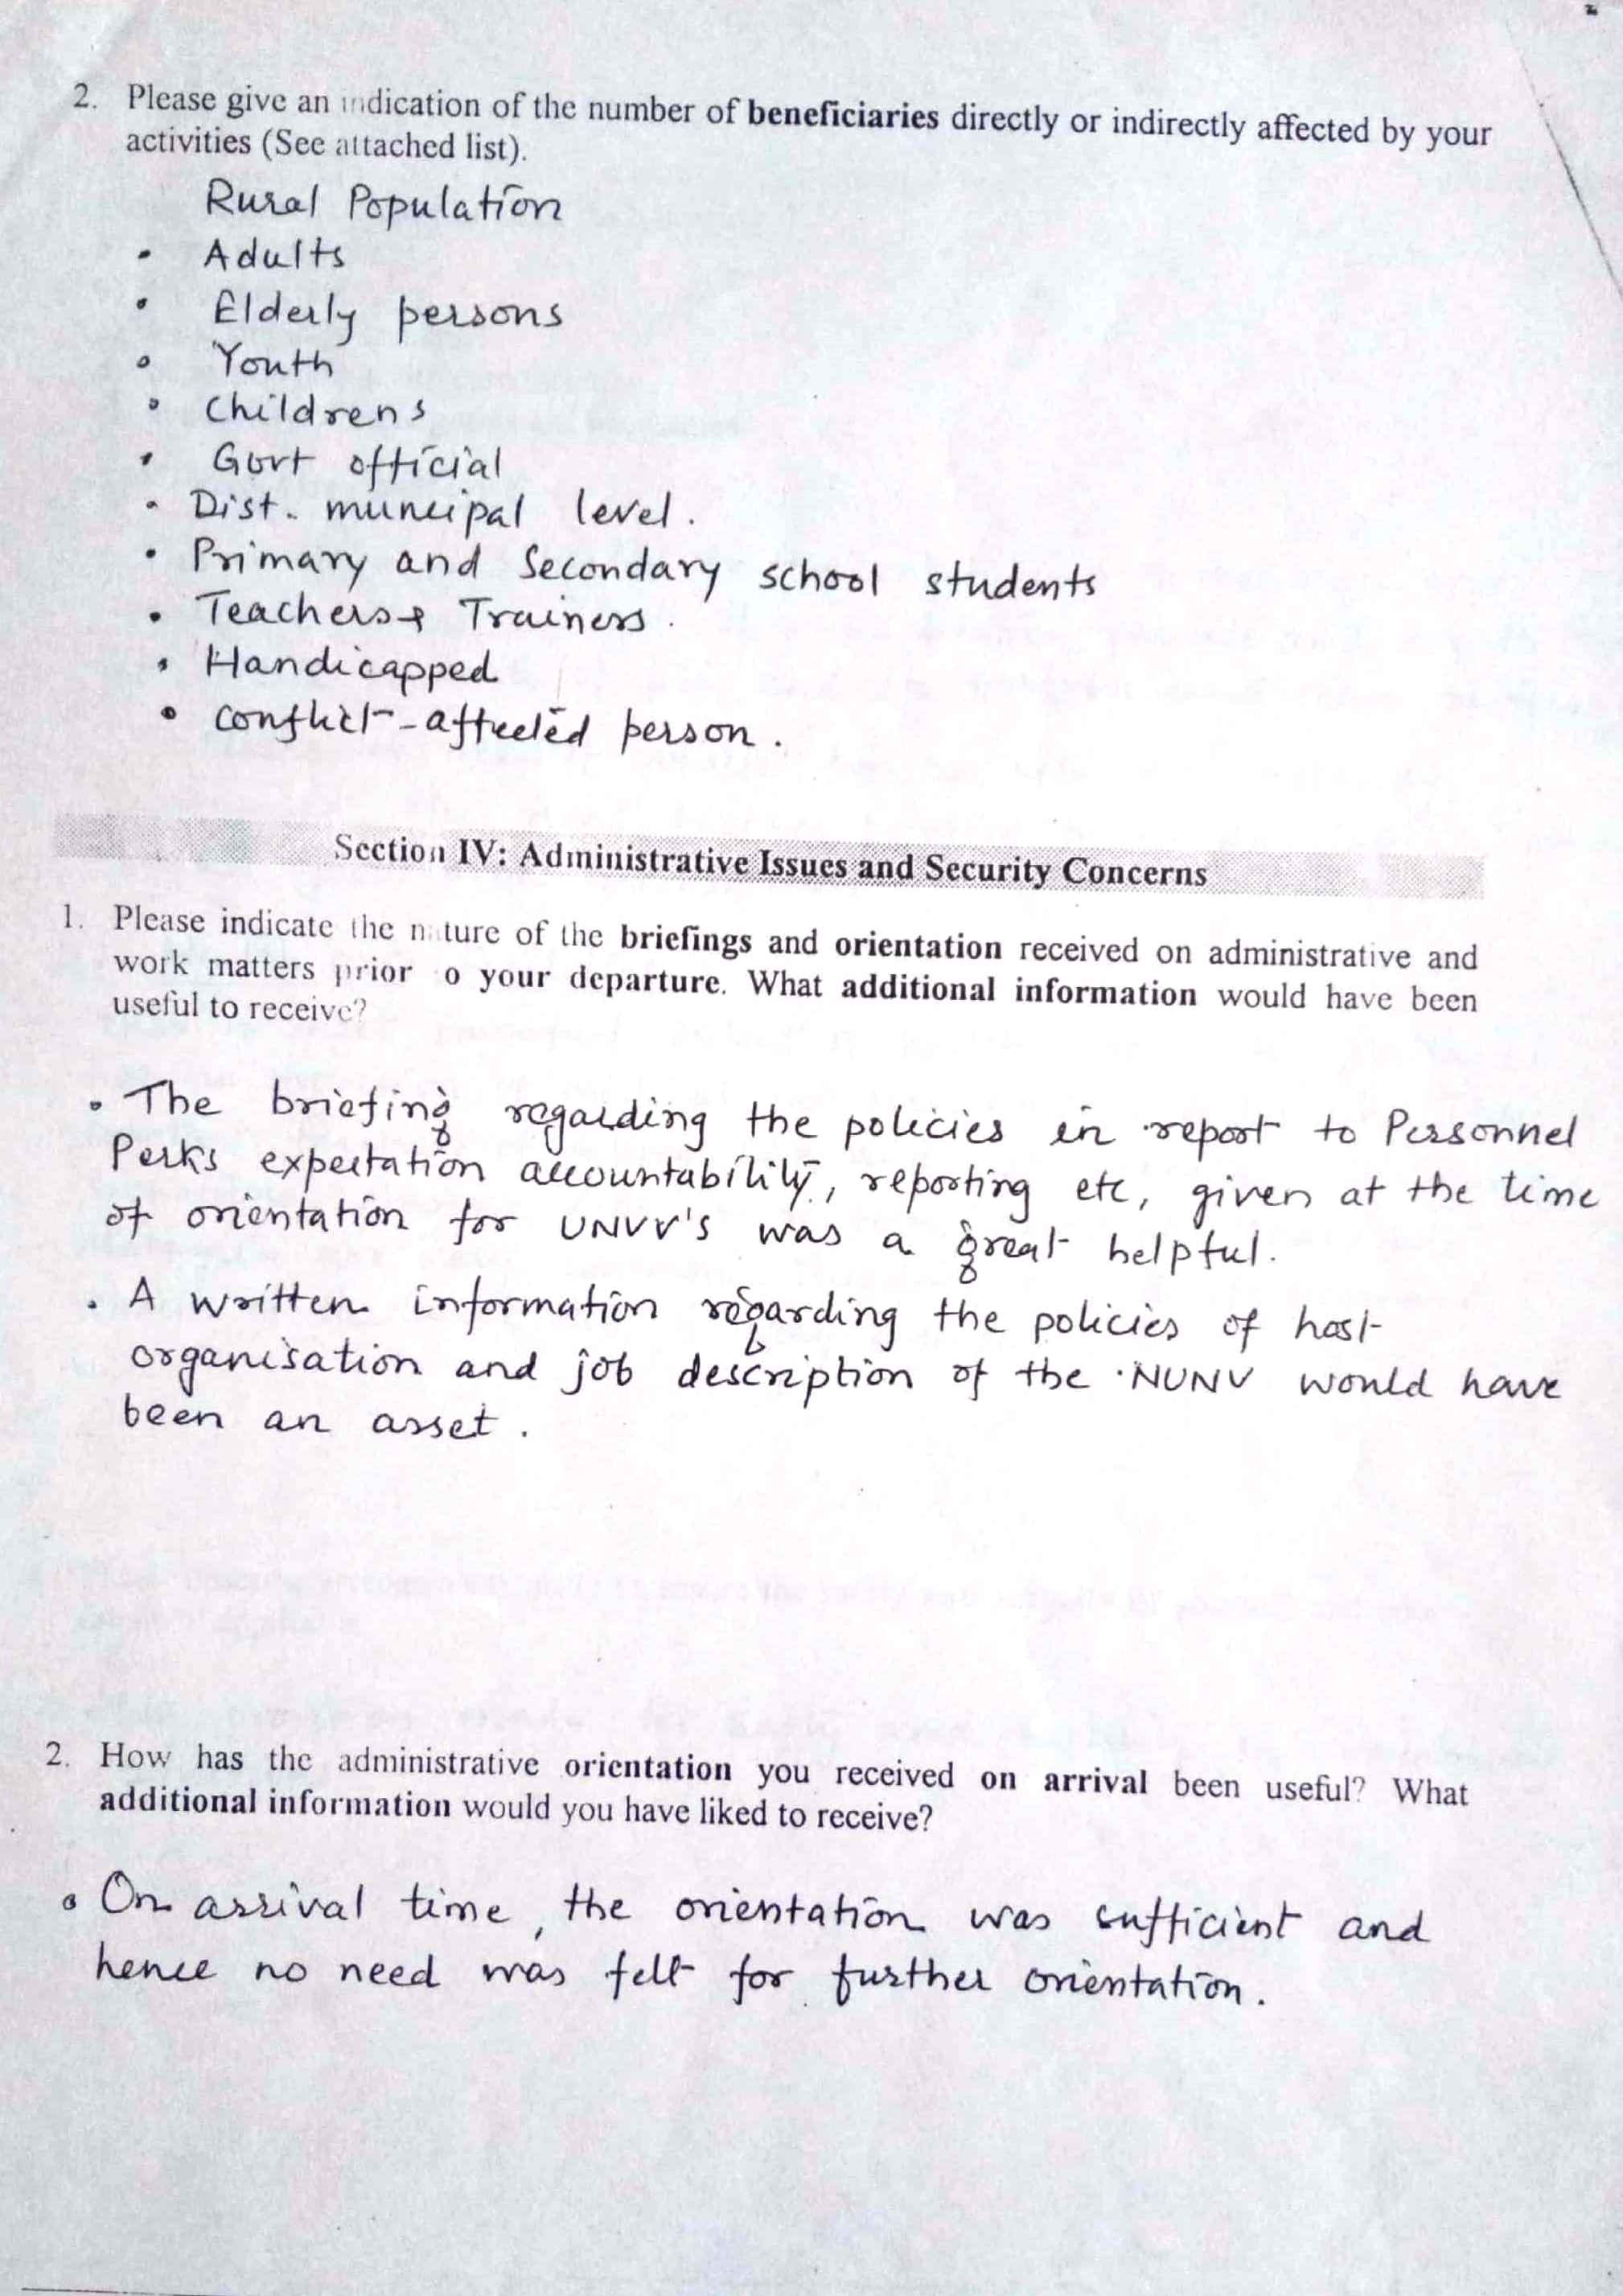 2. Please give an indication of the number of beneficiaries directly or indirectly affected by your
activities (See attached list).
Rural Population
• Adults
• Elderly persons
• Youth
• Childrens
• Govt official
• Dist. muncipal level.
• Primary and Secondary school students
• Teachers & Trainers.
• Handicapped
• Conflict-affected person.
Section IV: Administrative Issues and Security Concerns
1. Please indicate the nature of the briefings and orientation received on administrative and
work matters prior to your departure. What additional information would have been
useful to receive?
• The briefing regarding the policies in report to Personnel
Perks expectation accountability, reporting etc, given at the time
of orientation for UNVV's was a great helpful.
• A written information regarding the policies of host
organisation and job description of the NUNV would have
been an asset.
2. How has the administrative orientation you received on arrival been useful? What
additional information would you have liked to receive?
• On arrival time, the orientation was sufficient and
hence no need was felt for further orientation.